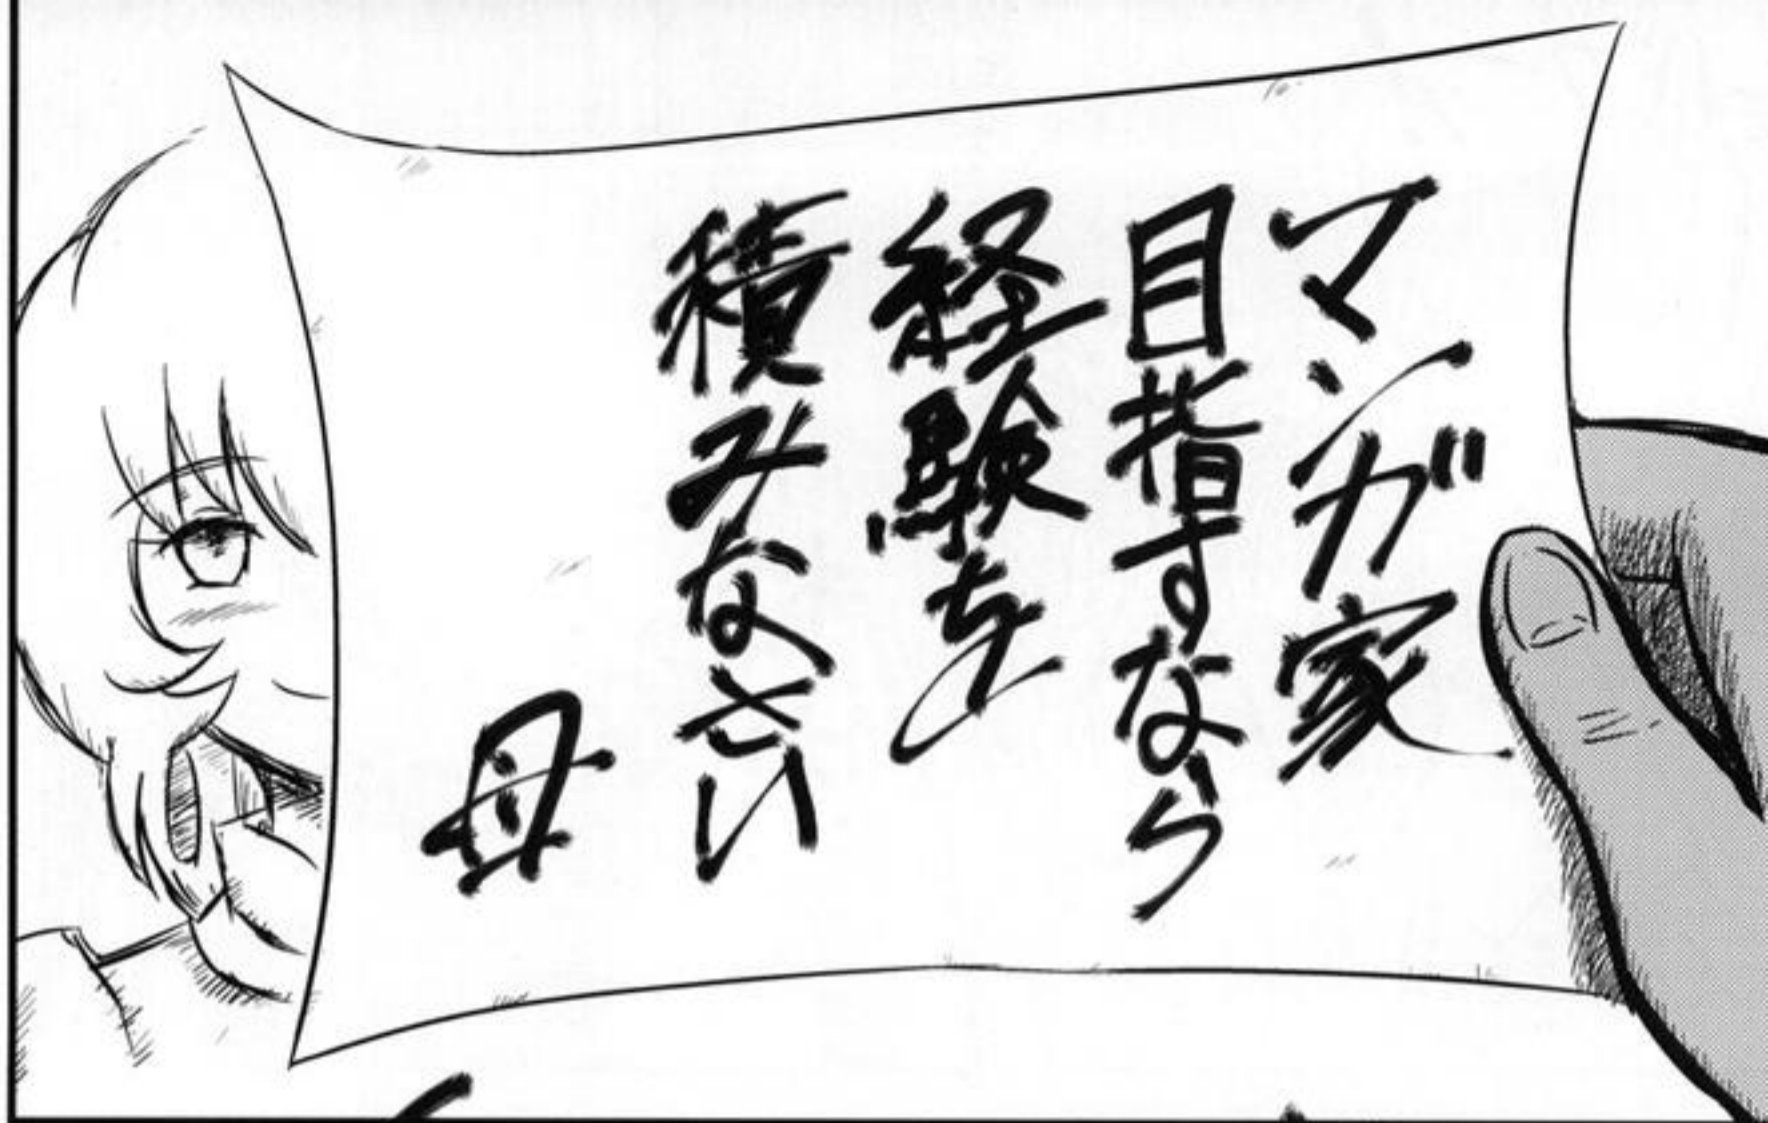 マンガ家
目指すなら
経験を
積みなさい
母